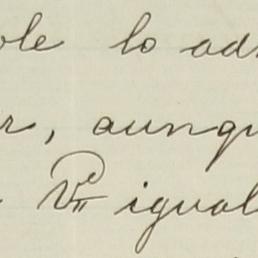 ole lo ad
r, aunqu
Vd igual